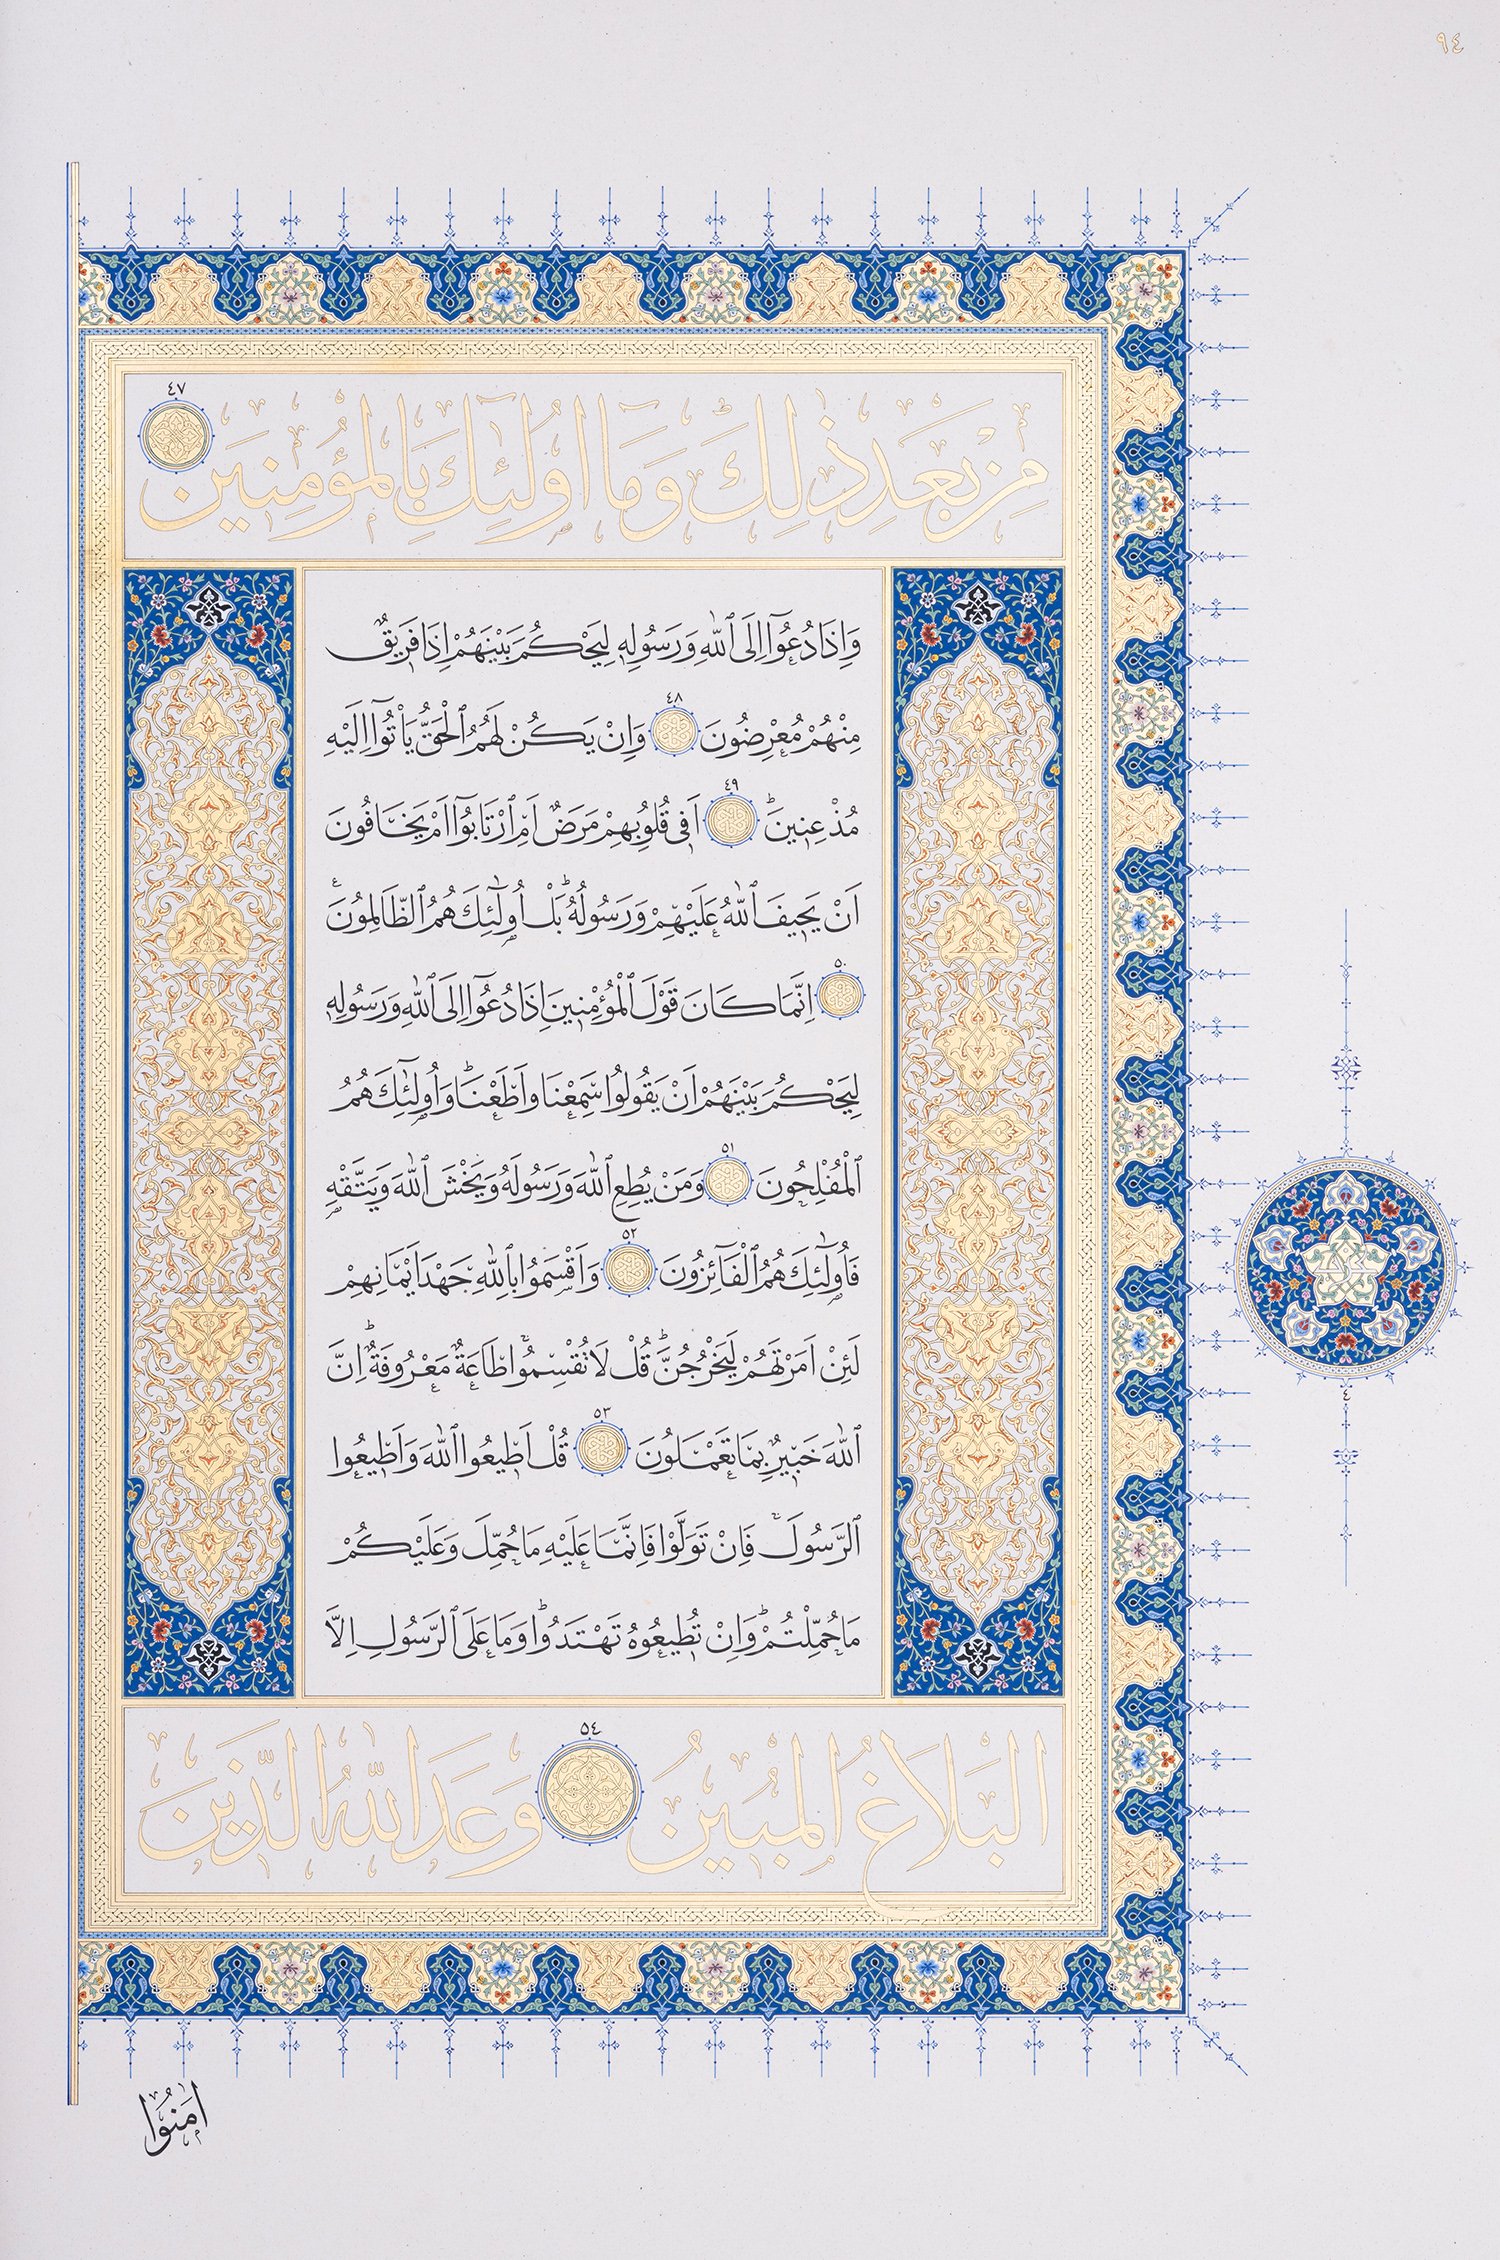 ٩٤
مِنْ بَعْدِ ذٰلِكَ وَمَا اُو۬لٰٓئِكَ بِالْمُؤْمِنِينَ ٤٧
وَاِذَا دُعُٓوا اِلَى اللّٰهِ وَرَسُولِهٖ لِيَحْكُمَ بَيْنَهُمْ اِذَا فَرٖيقٌ
مِنْهُمْ مُعْرِضُونَ ٤٨ وَاِنْ يَكُنْ لَهُمُ الْحَقُّ يَأْتُٓوا اِلَيْهِ
مُذْعِنٖينَ ؕ ٤٩ اَفٖى قُلُوبِهِمْ مَرَضٌ اَمِ ارْتَابُٓوا اَمْ يَخَافُونَ
اَنْ يَحٖيفَ اللّٰهُ عَلَيْهِمْ وَرَسُولُهُ ؕ بَلْ اُو۬لٰٓئِكَ هُمُ الظَّالِمُونَ ع
٥٠ اِنَّمَا كَانَ قَوْلَ الْمُؤْمِنٖينَ اِذَا دُعُٓوا اِلَى اللّٰهِ وَرَسُولِهٖ
لِيَحْكُمَ بَيْنَهُمْ اَنْ يَقُولُوا سَمِعْنَا وَاَطَعْنَا ؕ وَاُو۬لٰٓئِكَ هُمُ
الْمُفْلِحُونَ ٥١ وَمَنْ يُطِعِ اللّٰهَ وَرَسُولَهُ وَيَخْشَ اللّٰهَ وَيَتَّقْهِ
فَاُو۬لٰٓئِكَ هُمُ الْفَٓائِزُونَ ٥٢ وَاَقْسَمُوا بِاللّٰهِ جَهْدَ اَيْمَانِهِمْ
لَئِنْ اَمَرْتَهُمْ لَيَخْرُجُنَّ ؕ قُلْ لَا تُقْسِمُوا ۚ طَاعَةٌ مَعْرُوفَةٌ ؕ اِنَّ
اللّٰهَ خَبٖيرٌ بِمَا تَعْمَلُونَ ٥٣ قُلْ اَطٖيعُوا اللّٰهَ وَاَطٖيعُوا
الرَّسُولَ ۚ فَاِنْ تَوَلَّوْا فَاِنَّمَا عَلَيْهِ مَا حُمِّلَ وَعَلَيْكُمْ
مَا حُمِّلْتُمْ ؕ وَاِنْ تُطٖيعُوهُ تَهْتَدُوا ؕ وَمَا عَلَى الرَّسُولِ اِلَّا
الْبَلَاغُ الْمُبِينُ ٥٤ وَعَدَ اللّٰهُ الَّذِينَ
اٰمَنُوا
٤